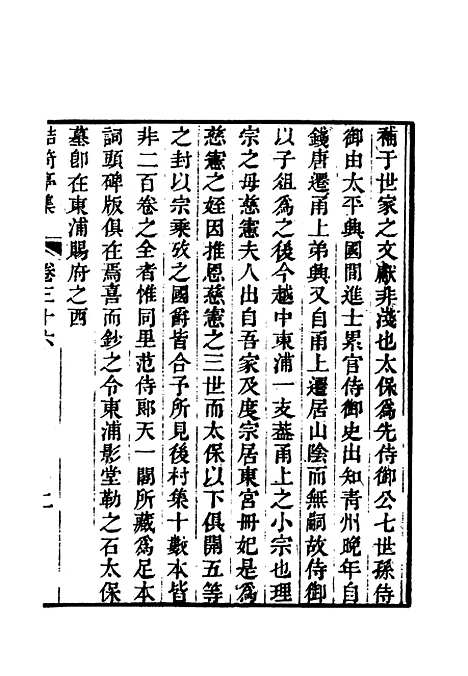 補于世家之文獻非淺也太保爲先侍御公七世孫侍
御由太平興國間進士累官侍御史出知青州晚年自
錢唐遷甬上弟興又自甬上遷居山陰而無嗣故侍御
以子祖爲之後今越中東浦一支葢甬上之小宗也理
宗之母慈憲夫人出自吾家及度宗居東宮冊妃是爲
慈憲之姪因推恩慈憲之三世而太保以下俱開五等
之封以宗乘攷之國爵皆合予所見後村集十數本皆
非二百卷之全者惟同里范侍郎天一閣所藏爲足本
詞頭碑版俱在焉喜而鈔之令東浦影堂勒之石太保
墓卽在東浦賜府之西
鮚埼亭集
卷三十六